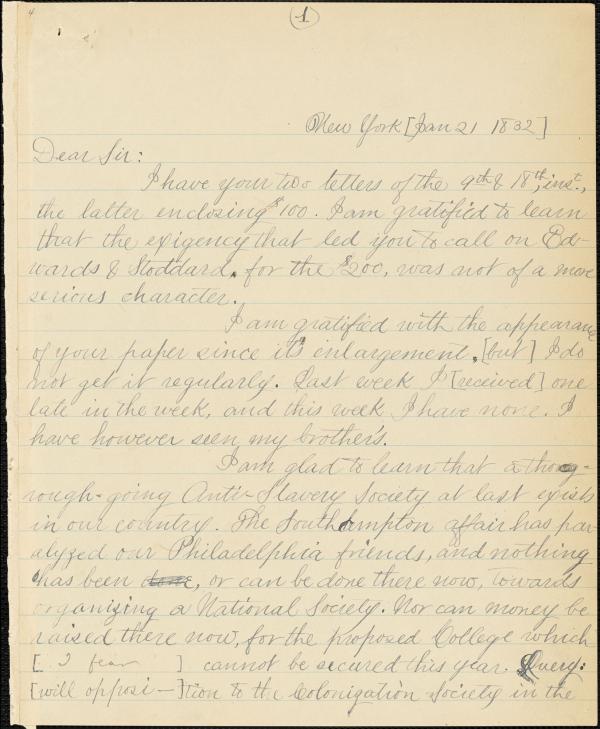 1
New York [Jan 21 1832]
Dear Sir:
I have your two letters of the 9th & 18th, inst.,
the latter enclosing $100. I am gratified to learn
that the exigency that led you to call on Ed-
wards & Stoddard, for the $200, was not of a more
serious character.
I am gratified with the appearance
of your paper since its enlargement, [but] I do
not get it regularly. Last week I [received] one
late in the week, and this week I have none. I
have however seen my brother's.
I am glad to learn that a thor-
ough-going Anti-Slavery Society at last exists
in our country. The Southampton affair has par-
alyzed our Philadelphia friends, and nothing
has been done, or can be done there now, towards
organizing a National Society. Nor can money be
raised there now, for the proposed College which
[ I fear ] cannot be secured this year. Query:
[will opposi-]tion to the Colonization Society in the